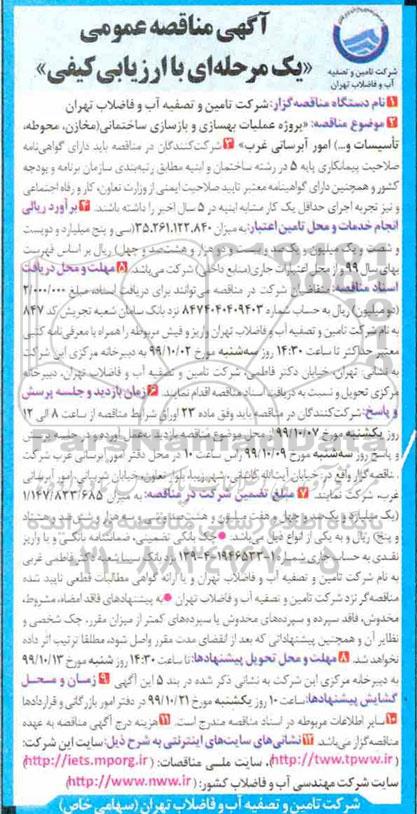 آگهی مناقصه عمومی
«یک مرحله‌ای با ارزیابی کیفی»
شرکت تامین و تصفیه
آب و فاضلاب تهران
1 نام دستگاه مناقصه‌گزار: شرکت تامین و تصفیه آب و فاضلاب تهران
2 موضوع مناقصه: «پروژه عملیات بهسازی و بازسازی ساختمانی(مخازن، محوطه،
تأسیسات و...) امور آبرسانی غرب» 3 شرکت‌کنندگان در مناقصه باید دارای گواهی‌نامه
صلاحیت پیمانکاری پایه 5 در رشته ساختمان و ابنیه مطابق رتبه‌بندی سازمان برنامه و بودجه
کشور و همچنین دارای گواهینامه معتبر تایید صلاحیت ایمنی از وزارت تعاون، کار و رفاه اجتماعی
و نیز تجربه اجرای حداقل یک کار مشابه ابنیه در 5 سال اخیر را داشته باشند. 4 برآورد ریالی
انجام خدمات و محل تامین اعتبار: به میزان 35.261.122.840(سی و پنج میلیارد و دویست
و شصت و یک میلیون و یکصد و بیست و دو هزار و هشتصد و چهل) ریال بر اساس فهرست
بهای سال 99 و از محل اعتبارات جاری(منابع داخلی) شرکت می‌باشد. 5 مهلت و محل دریافت
اسناد مناقصه: متقاضیان شرکت در مناقصه می‌توانند برای دریافت اسناد، مبلغ 2/000/000
(دو میلیون) ریال به حساب شماره 8474040409403 نزد بانک سامان شعبه تجریش کد 847
به نام شرکت تامین و تصفیه آب و فاضلاب تهران واریز و فیش مربوطه را همراه با معرفی‌نامه کتبی
معتبر حداکثر تا ساعت 14:30 روز سه‌شنبه مورخ 99/10/02 به دبیرخانه مرکزی این شرکت
به نشانی: تهران، خیابان دکتر فاطمی، شرکت تامین و تصفیه آب و فاضلاب تهران، دبیرخانه
مرکزی تحویل و نسبت به دریافت اسناد مناقصه اقدام نمایند. 6 زمان بازدید و جلسه پرسش
و پاسخ: شرکت‌کنندگان در مناقصه باید وفق ماده 23 اوراق شرایط مناقصه از ساعت 8 الی 12
روز یکشنبه مورخ 99/10/07 از محل موضوع مناقصه بازدید به عمل آورده و در جلسه پرسش
و پاسخ روز سه‌شنبه مورخ 99/10/09 راس ساعت 10 در محل دفتر امور آبرسانی غرب شرکت
مناقصه‌گزار واقع در: خیابان آیت‌الله کاشانی، شهرزیبا، بلوار تعاون، خیابان شربیانی، امور آبرسانی
غرب، شرکت نمایند. 7 مبلغ تضمین شرکت در مناقصه: به میزان 1/147/833/685
(یک میلیارد و یکصد و چهل و هفت میلیون و هشتصد و سی و سه هزار و ششصد و هشتاد و
پنج) ریال و به یکی از انواع ذیل می‌باشد: ● چک بانکی تضمینی، ضمانتنامه بانکی و یا واریز
نقدی به حساب جاری شماره 139-40-1946533-1 نزد بانک سینا شعبه دکتر فاطمی غربی
به نام شرکت تامین و تصفیه آب و فاضلاب تهران و یا ارائه گواهی مطالبات قطعی تایید شده
مناقصه‌گر نزد شرکت تامین و تصفیه آب و فاضلاب تهران ● به پیشنهادهای فاقد امضاء، مشروط،
مخدوش، فاقد سپرده و سپرده‌های مخدوش یا سپرده‌های کمتر از میزان مقرر، چک شخصی و
نظایر آن و همچنین پیشنهاداتی که بعد از انقضای مدت مقرر واصل شود، مطلقا ترتیب اثر داده
نخواهد شد. 8 مهلت و محل تحویل پیشنهادها: تا ساعت 14:30 روز شنبه مورخ 99/10/13
به دبیرخانه مرکزی این شرکت به نشانی ذکر شده در بند 5 این آگهی 9 زمان و محل
گشایش پیشنهادها: ساعت 10 روز یکشنبه مورخ 99/10/21 در محل دفتر امور بازرگانی و قراردادها
10 سایر اطلاعات مربوطه در اسناد مناقصه مندرج است. 11 هزینه درج آگهی مناقصه به عهده
مناقصه‌گزار می‌باشد. 12 نشانی‌های سایت‌های اینترنتی به شرح ذیل: سایت این شرکت:
(http://tww.tpww.ir)، سایت ملی مناقصات: (http://iets.mporg.ir)
سایت شرکت مهندسی آب و فاضلاب کشور: (http://www.nww.ir)
شرکت تامین و تصفیه آب و فاضلاب تهران (سهامی خاص)